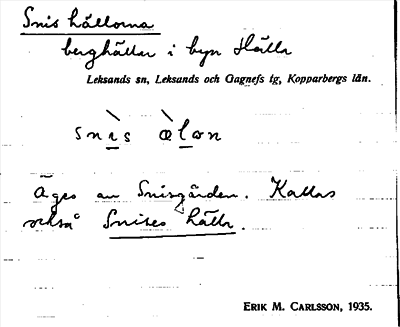 Snis hällorna
berghällar i byn Hälla
Leksands sn, Leksands och Gagnefs tg, Kopparbergs län.
snɩs ælon
Äges av Snisgården. Kallas
också Snises hälla.
ERIK M. CARLSSON, 1935.